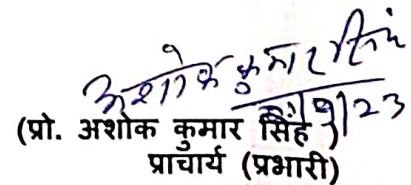 अशोक कुमार सिंह
(प्रो. अशोक कुमार सिंह)
प्राचार्य (प्रभारी)